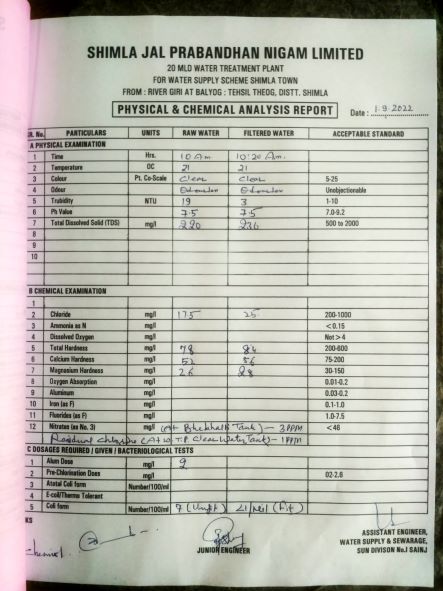 SHIMLA JAL PRABANDHAN NIGAM LIMITED
20 MLD WATER TREATMENT PLANT
FOR WATER SUPPLY SCHEME SHIMLA TOWN
FROM : RIVER GIRI AT BALYOG : TEHSIL THEOG, DISTT. SHIMLA
PHYSICAL & CHEMICAL ANALYSIS REPORT
Date : 1.9.2022
SR. No. PARTICULARS UNITS RAW WATER FILTERED WATER ACCEPTABLE STANDARD
A PHYSICAL EXAMINATION
1 Time Hrs. 10 Am 10:20 Am.
2 Temperature OC 21 21
3 Colour Pt. Co-Scale Clear Clear 5-25
4 Odour Unobjectionable
5 Trubidity NTU 19 3 1-10
6 Ph Value 7.5 7.5 7.0-9.2
7 Total Dissolved Solid (TDS) mg/l 220 236 500 to 2000
8
9
10
B CHEMICAL EXAMINATION
1
2 Chloride mg/l 175 25 200-1000
3 Ammonia as N mg/l <0.15
4 Dissolved Oxygen mg/l Not > 4
5 Total Hardness mg/l 78 84 200-600
6 Calcium Hardness mg/l 52 56 75-200
7 Magnesium Hardness mg/l 26 28 30-150
8 Oxygen Absorption mg/l 0.01-0.2
9 Aluminum mg/l 0.03-0.2
10 Iron (as F) mg/l 0.1-1.0
11 Fluorides (as F) mg/l 1.0-7.5
12 Nitrates (as No. 3) mg/l Tank) - 3 PPM <46
Residual Chlorine (At W.T.P. Clear Water Tank) - 1 PPM
C DOSAGES REQUIRED / GIVEN / BACTERIOLOGICAL TESTS
1 Alum Dose mg/l 9
2 Pre-Chlorination Does mg/l 02-2.6
3 Atotal Coli form Number/100/ml
4 E-coli/Thermo Tolerant
5 Coli form Number/100/ml 7 (Unfit) (Fit)
KS
JUNIOR ENGINEER
ASSISTANT ENGINEER,
WATER SUPPLY & SEWARAGE,
SUN DIVISON No.I SAINJ